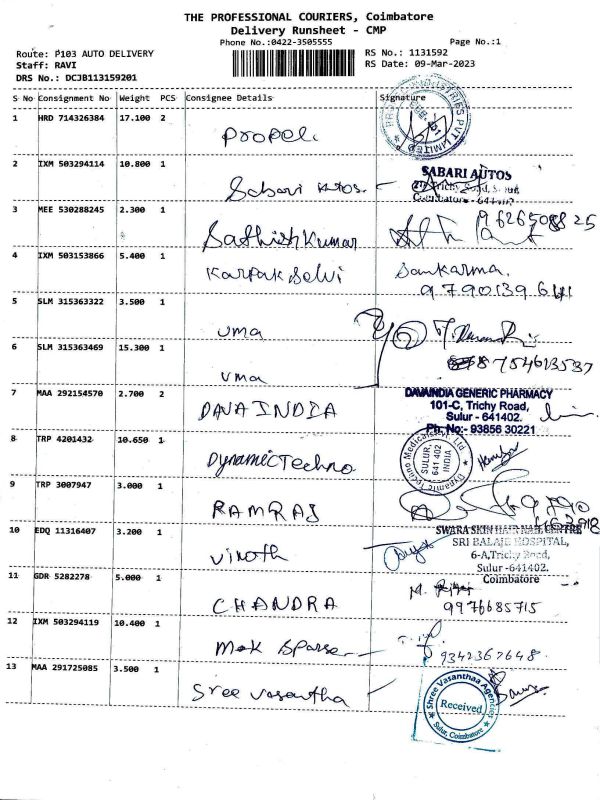 THE PROFESSIONAL COURIERS, Coimbatore
Delivery Runsheet - CMP
Phone No.:0422-3505555
Page No.:1
Route: P103 AUTO DELIVERY
RS No.: 1131592
Staff: RAVI
RS Date: 09-Mar-2023
DRS No.: DCJB113159201
S No Consignment No Weight PCS Consignee Details Signature
1 HRD 714326384 17.100 2
PVT LIMITED
Propel
2 IXM 503294114 10.800 1
SABARI AUTOS
Trichy Road,
Sabari Autos
Coimbatore - 641402
3 MEE 530288245 2.300 1
9626508825
Sathish Kumar
4 IXM 503153866 5.400 1
Karpak Selvi Sankarma.
9790139641
5 SLM 315363322 3.500 1
uma
6 SLM 315363469 15.300 1
8754613537
uma
7 MAA 292154570 2.700 2
DAVAINDIA GENERIC PHARMACY
101-C, Trichy Road,
DAVA INDIA
Sulur - 641402.
Ph. No:- 93856 30221
8 TRP 4201432 10.650 1
Dynamic Techno Medicals Pvt. Ltd.
SULUR.
641 402
INDIA
Dynamic Techno
9 TRP 3007947 3.000 1
9790
RAMRAJ
10 EDQ 11316407 3.200 1
SWARA SKIN HAIR NAIL CENTRE
SRI BALAJE HOSPITAL,
6-A,Trichy Road,
Vinoth
Sulur -641402.
Coimbatore
11 GDR 5282278 5.000 1
CHANDRA
9976685715
12 IXM 503294119 10.400 1
9342367648
13 MAA 291725085 3.500 1
Sree Vasantha
Shree Vasanthaa Agencies
Received
Sulur, Coimbatore